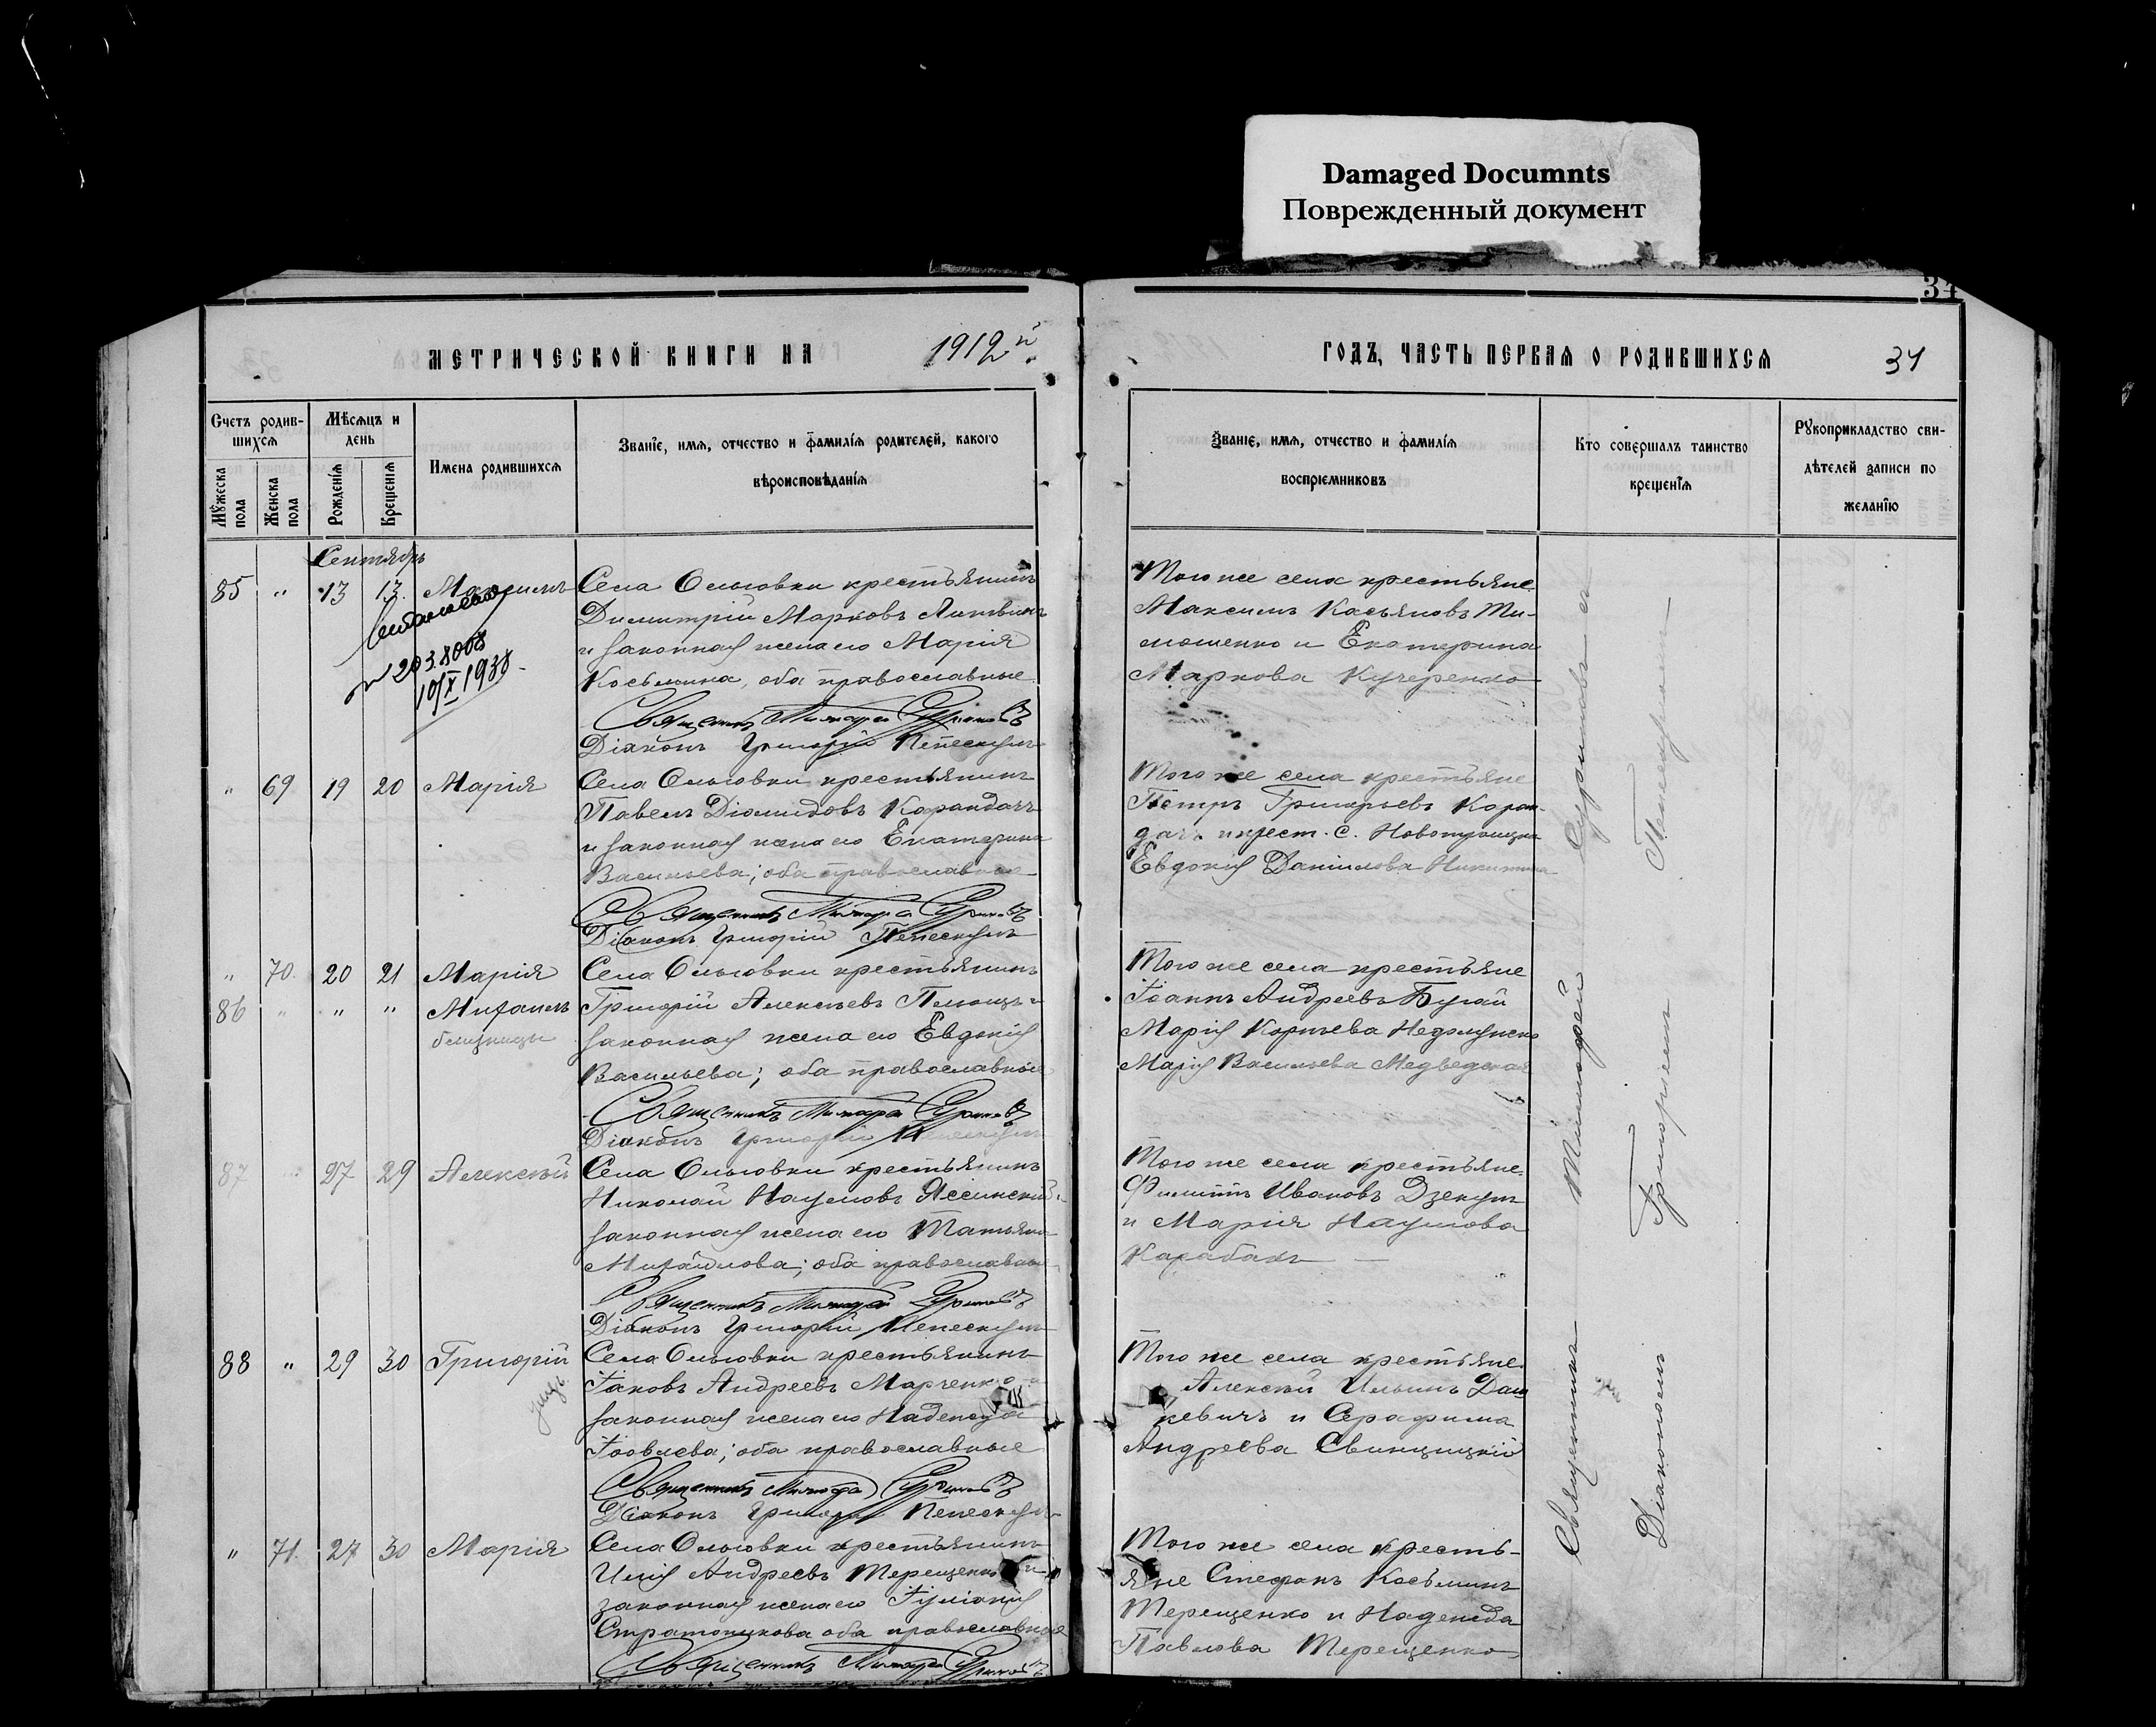 Damaged Documnts
Поврежденный документ
34
МЕТРИЧЕСКОЙ КНИГИ НА 1912 й
ГОДЪ, ЧАСТЬ ПЕРВАЯ О РОДИВШИХСЯ
34
Счетъ родив-
шихся
Мѣсяцъ и
день
Мужеска
пола
Женска
пола
Рожденія
Крещенія
Имена родившихся
Званіе, имя, отчество и фамилія родителей, какого
вѣроисповѣданія
Званіе, имя, отчество и фамилія
воспріемниковъ
Кто совершалъ таинство
крещенія
Рукоприкладство сви-
дѣтелей записи по
желанію
Сентябрь
85 " 13 13. Максимъ
10/X 1938
Села Ольговки крестьянинъ
Димитрій Марковъ Литвинъ
и законная жена его Марія
Косьмина, оба православные
Священникъ
Діаконъ Григорій
Того же села крестьяне
Максимъ Касьяновъ Ти-
мошенко и Екатерина
Маркова Кучеренко
" 69 19 20 Марія
Села Ольговки крестьянинъ
Павелъ Діомидовъ Карандачъ
и законная жена его Екатерина
Васильева; оба православные
Священникъ
Діаконъ Григорій
Того же села крестьяне
Петръ Григорьевъ Каран-
дачъ и крест. с. Новотроицка
Евдокія Даніилова Никитина
" 70. 20 21 Марія
86 " " " Михаилъ
близнецы
Села Ольговки крестьянинъ
Григорій Алексѣевъ
законная жена его Евдокія
Васильева; оба православные
Священникъ
Діаконъ Григорій
Того же села крестьяне
Іоаннъ Андреевъ Бугай
Марія
Марія Васильева Медведская
87 " 27 29 Алексѣй
Села Ольговки крестьянинъ
Николай Наумовъ Ясинскій и
законная жена его Татьяна
Михайлова; оба православные
Священникъ
Діаконъ Григорій
Того же села крестьяне
Филиппъ Ивановъ Дзекунъ
и Марія Наумова
88 " 29 30 Григорій
Села Ольговки крестьянинъ
Іаковъ Андреевъ Марченко и
законная жена его Надежда
Іовлева; оба православные
Священникъ
Діаконъ Григорій
Того же села крестьяне
Алексѣй Ильинъ Даш
кевичъ и Серафима
Андреева Свинцицкій
" 71. 27 30 Марія
Села Ольговки крестьянинъ
Илія Андреевъ Терещенко и
законная жена его Іуліанія
Стратоникова оба православные
Священникъ
Того же села кресть-
яне Стефанъ Косьминъ
Терещенко и Надежда
Павлова Терещенко
Священникъ
Діакономъ Григоріемъ